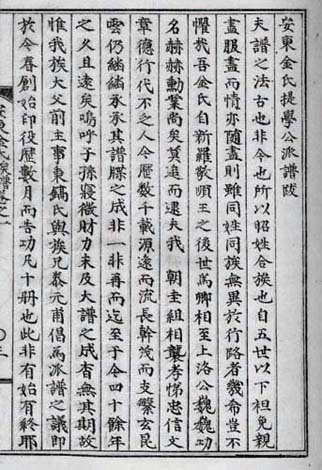 安東金氏提學公派譜跋
夫譜之法古也非今也所以昭姓合族也自五世以下袒免親
盡服盡而情亦隨盡則雖同姓同族無異於行路者幾希豈不
懼哉吾金氏自新羅敬順王之後世爲卿相至上洛公巍巍功
名赫赫勳業尚矣莫追而逮夫我 朝圭組相襲孝悌忠信文
章德行代不乏人今歷數千載源遠而流長幹茂而支繁玄昆
雲仍繩繩承承其譜牒之成非一非再而迄至于今四十餘年
之久且遠矣嗚呼子孫寢微財力未及大譜之成杳無其期故
惟我族大父前主事東鎬氏與族兄泰元甫倡爲派譜之議即
於今春創始印役歷數月而告功凡十冊也此非有始有終耶
安東金氏族譜卷之一